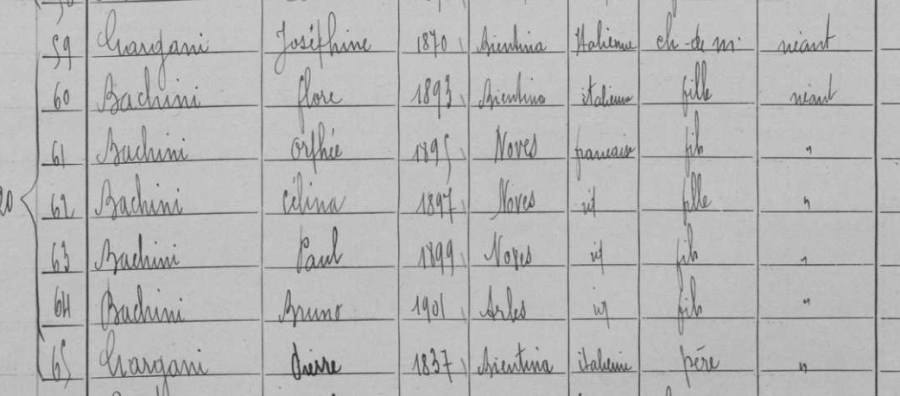 59 Gargani Joséphine 1870 Bientina Italienne ch. de m. néant
60 Bachini flore 1893 Bientina italienne fille néant
61 Bachini Orphée 1895 Noves francaise fils "
20 62 Bachini Célina 1897 Noves id fille "
63 Bachini Paul 1899 Noves id fils "
64 Bachini Bruno 1901 Arles id fils "
65 Gargani Pierre 1837 Bientina italienne père "